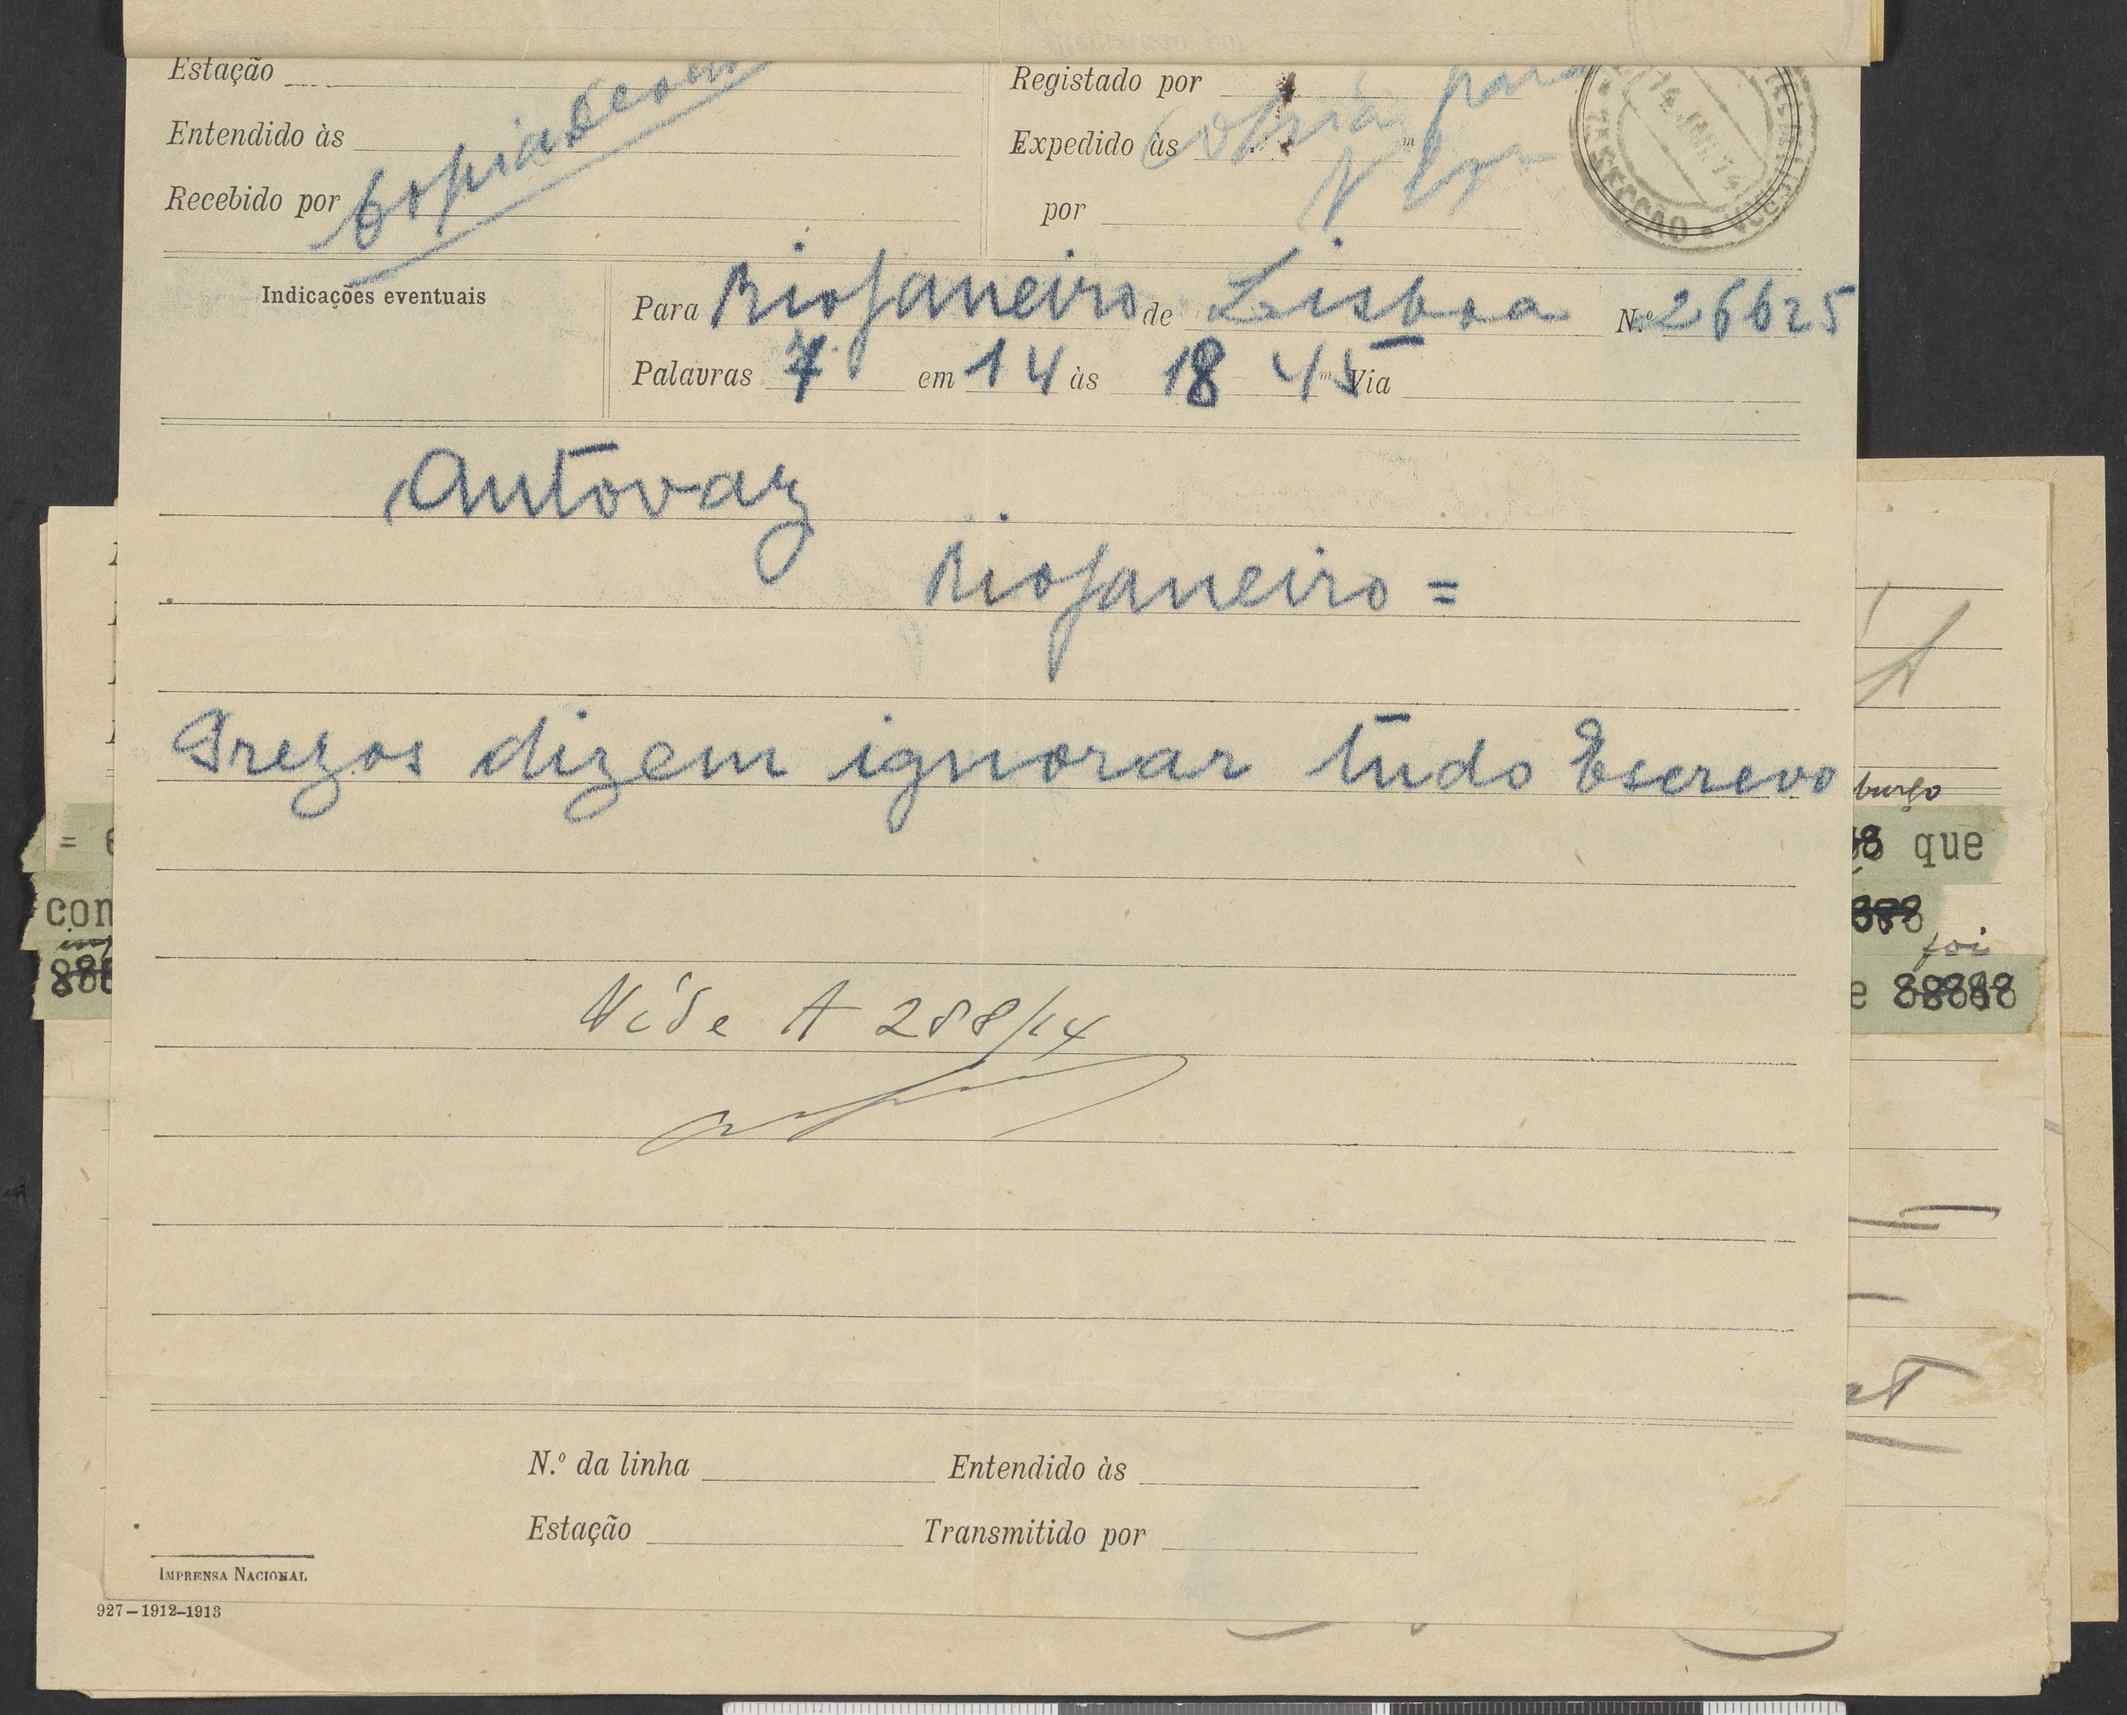 Estação
Registado por
Entendido às
Expedido às
Copia para
Recebido por
Copiada
por
14 JAN. 14
SECÇÃO
Indicações eventuais
Para RioJaneiro de Lisboa N.º 26625
Palavras 7 em 14 às 18 45 m Via
Autovaz
RioJaneiro =
Prezos dizem ignorar tudo Escrevo
Vide A 288/14
N.º da linha Entendido às
Estação Transmitido por
IMPRENSA NACIONAL
927—1912-1913
burgo
= que
con
foi
e